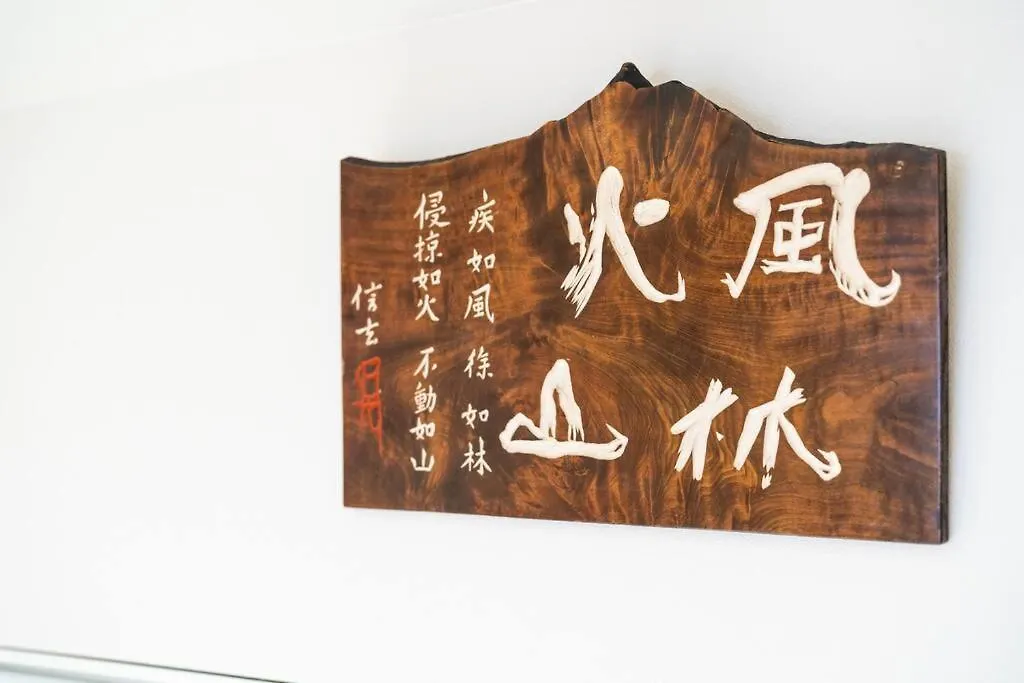 風林
火山
疾如風 徐如林
侵掠如火 不動如山
信玄